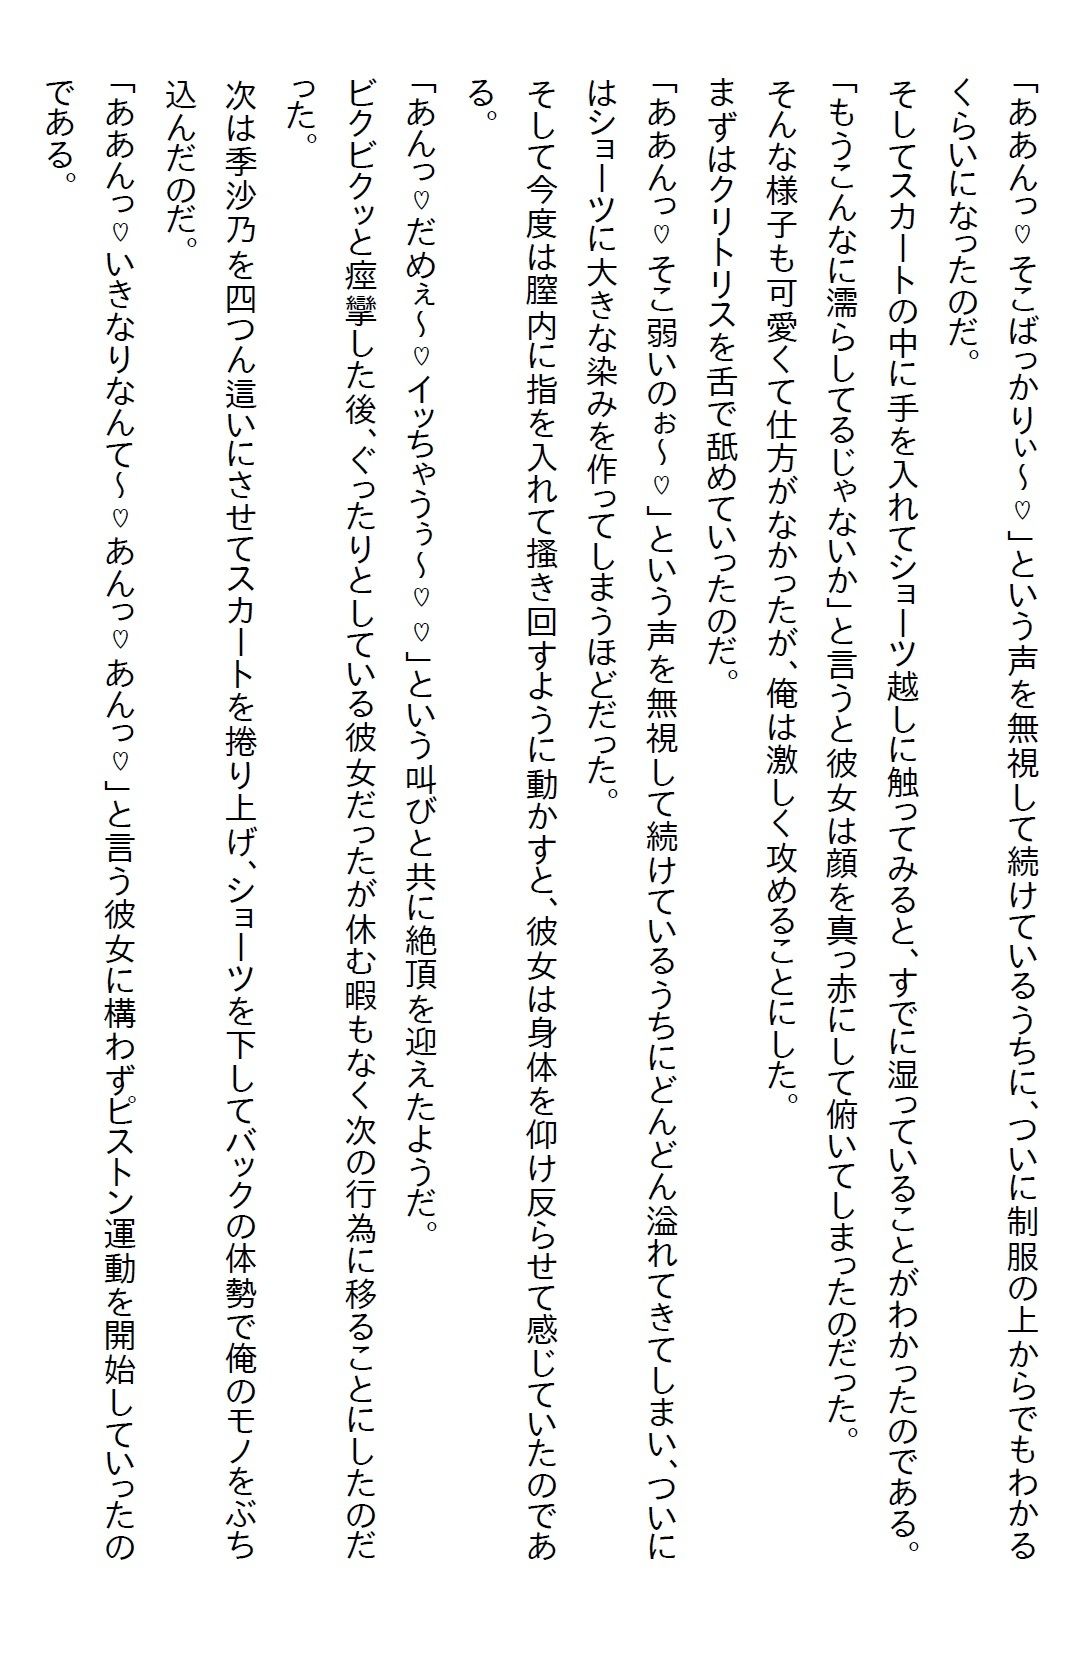 「ああんっ♡そこばっかりぃ～♡」という声を無視して続けているうちに、ついに制服の上からでもわかる
くらいになったのだ。
そしてスカートの中に手を入れてショーツ越しに触ってみると、すでに湿っていることがわかったのである。
「もうこんなに濡らしてるじゃないか」と言うと彼女は顔を真っ赤にして俯いてしまったのだった。
そんな様子も可愛くて仕方がなかったが、俺は激しく攻めることにした。
まずはクリトリスを舌で舐めていったのだ。
「ああんっ♡そこ弱いのぉ～♡」という声を無視して続けているうちにどんどん溢れてきてしまい、ついに
はショーツに大きな染みを作ってしまうほどだった。
そして今度は膣内に指を入れて掻き回すように動かすと、彼女は身体を仰け反らせて感じていたのであ
る。
「あんっ♡だめぇ～♡イッちゃうぅ～♡♡」という叫びと共に絶頂を迎えたようだ。
ビクビクッと痙攣した後、ぐったりとしている彼女だったが休む暇もなく次の行為に移ることにしたのだ
った。
次は季沙乃を四つん這いにさせてスカートを捲り上げ、ショーツを下してバックの体勢で俺のモノをぶち
込んだのだ。
「ああんっ♡いきなりなんて～♡あんっ♡あんっ♡」と言う彼女に構わずピストン運動を開始していったの
である。